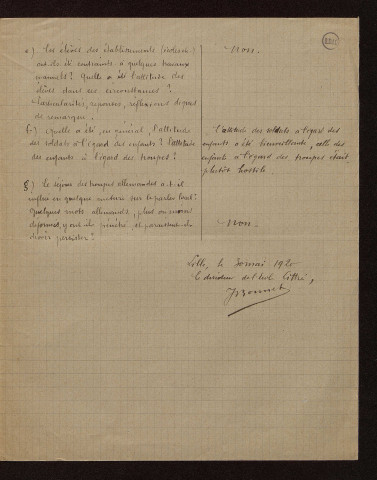 e) Les élèves des Établissements (écoles)
ont-ils été contraints à quelques travaux
manuels? Quelle a été l'attitude des
élèves dans ces circonstances?
Particularités, réponses, réflexions dignes
de remarque.
Non.
f) Quelle a été, en général, l'attitude
des soldats à l'égard des enfants? l'attitude
des enfants à l'égard des troupes?
L'attitude des soldats à l'égard des
enfants a été bienveillante, celle des
enfants à l'égard des troupes était
plutôt hostile.
g) Le séjour des troupes allemandes a-t-il
influé en quelque mesure sur le parler local?
Quelques mots allemands, plus ou moins
déformés, y ont-ils pénétré et paraissent-ils
devoir persister?
Non.
Lille, le 30 mai 1920
Le directeur de l'école Littré,